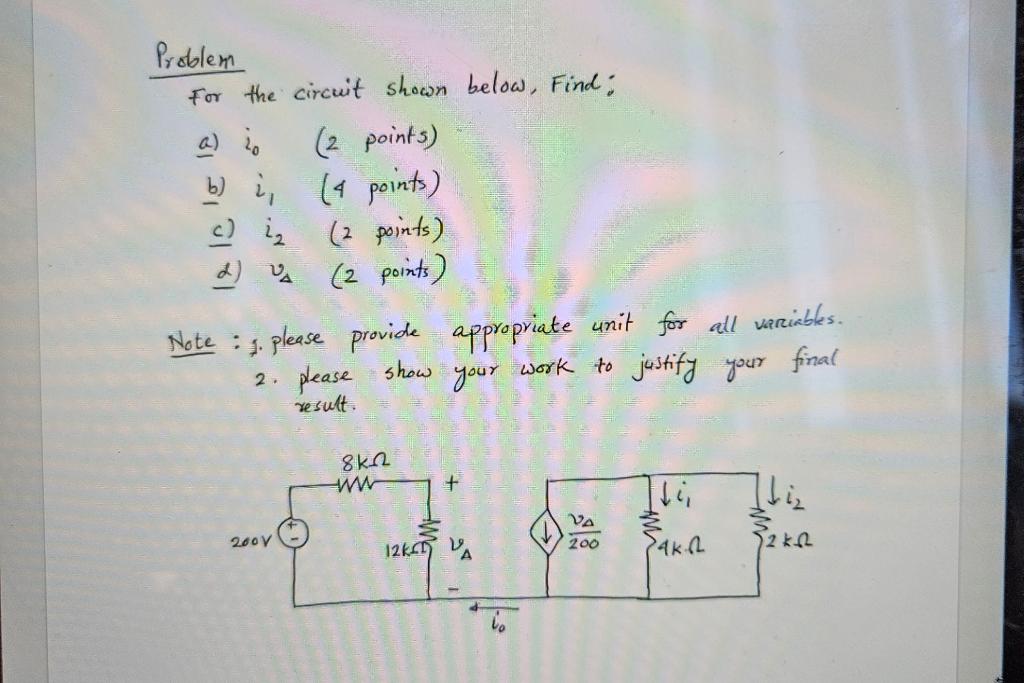 Problem
For the circuit shown below, Find;
a) i₀ (2 points)
b) i₁ (4 points)
c) i₂ (2 points)
d) v_Δ (2 points)
Note : 1. please provide appropriate unit for all variables.
2. please show your work to justify your final
result.
8kΩ
+
200V
+
-
12kΩ
v_Δ
-
i₀
v_Δ/200
↓i₁
4kΩ
↓i₂
2kΩ